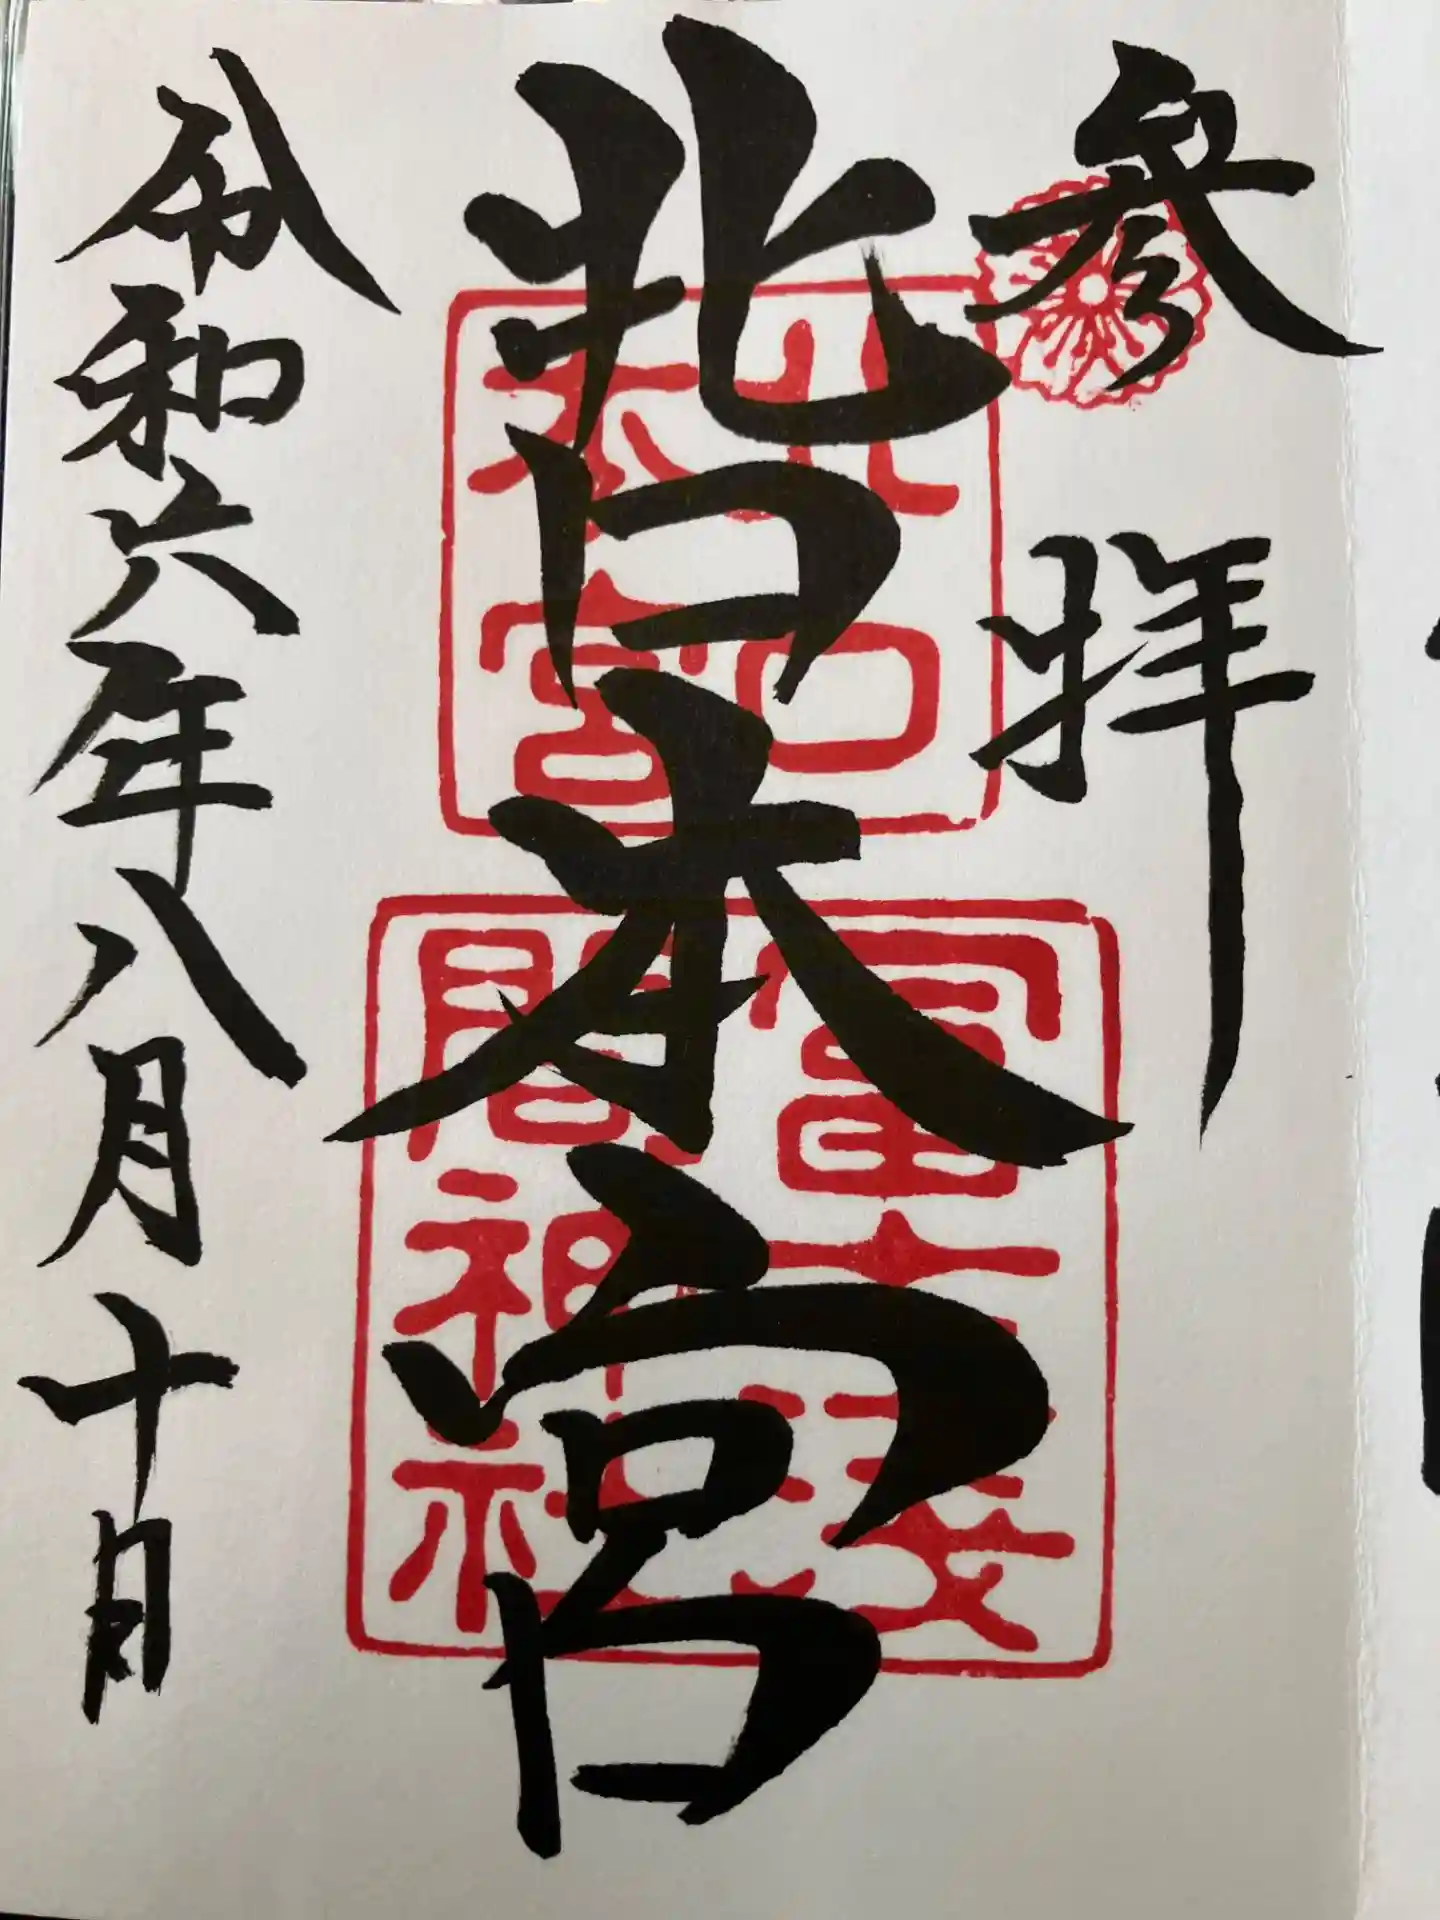 参拝
北口本宮
令和六年八月十日
北口
本宮
冨士淺
間神社